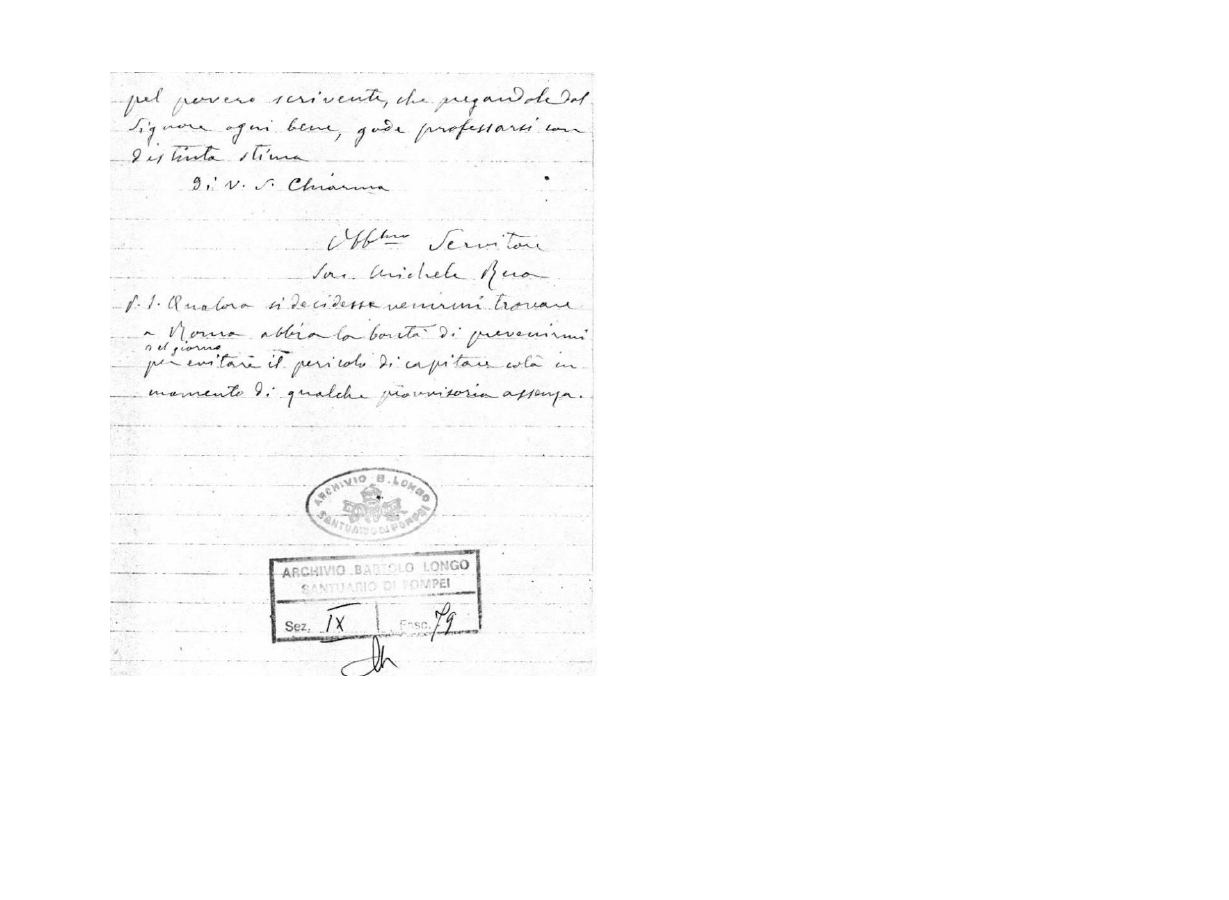 pel povero scrivente, che pregandole dal
Signore ogni bene, gode professarsi con
distinta stima
Di V. S. Chiarma
Obbmo Servitore
Sac. Michele Rua
P. S. Qualora si decidesse venirmi trovare
a Roma abbia la bontà di prevenirmi
del giorno
per evitare il pericolo di capitare colà in
momento di qualche provvisoria assenza.
ARCHIVIO B. LONGO
SANTUARIO DI POMPEI
ARCHIVIO BARTOLO LONGO
SANTUARIO DI POMPEI
Sez. IX Fasc. 79